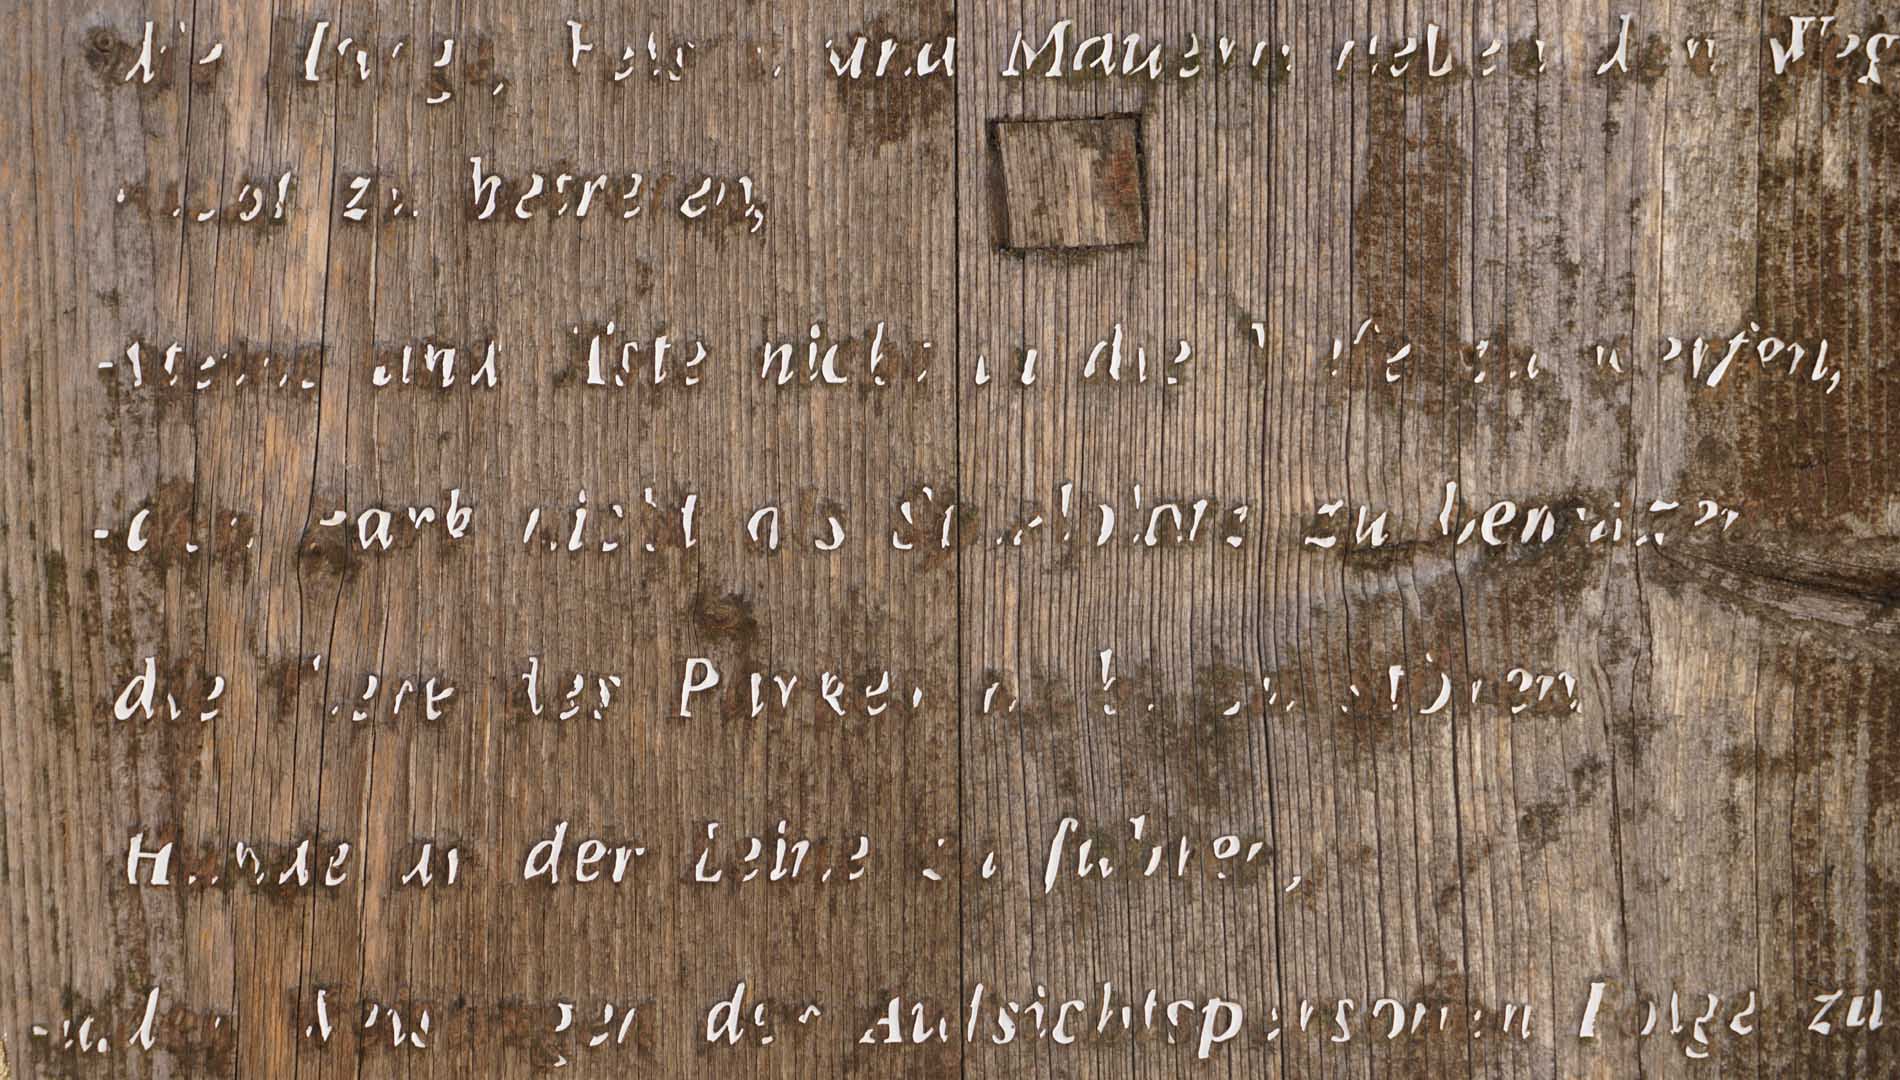 die Hänge, Felsen und Mauern neben den Weg
nicht zu betreten,
-Steine und Äste nicht in die Tiefe zu werfen,
-den Park nicht als zu benützen
die Tiere des Parkes nicht zu stören
Hunde an der Leine zu führen,
-und den Anweisungen der Aufsichtspersonen Folge zu